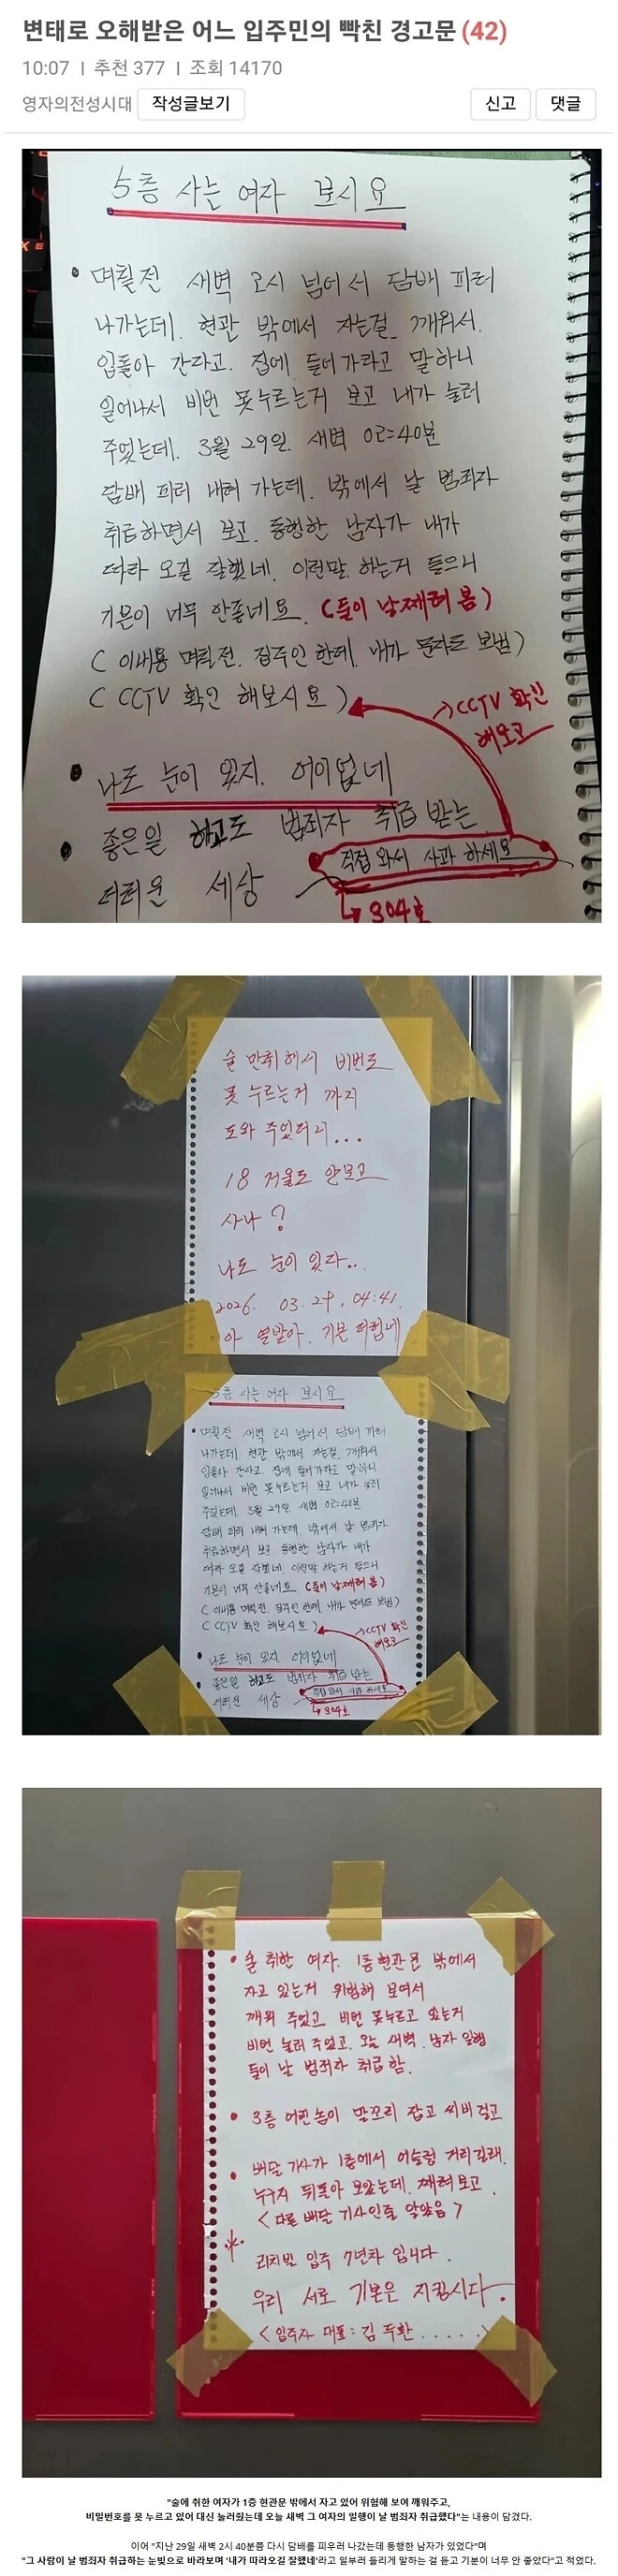 변태로 오해받은 어느 입주민의 빡친 경고문 (42)
10:07 | 추천 377 | 조회 14170
영자의전성시대 작성글보기 신고 댓글
5층 사는 여자 보시요
며칠전 새벽 2시 넘어서 담배 피러
나가는데. 현관 밖에서 자는걸. 깨워서.
입돌아 간라고. 집에 들어가라고 말하니
일어나서 비번 못누르는거 보고 내가 눌러
주었는데. 3월 29일. 새벽 02=40분
담배 피러 내려 가는데. 밖에서 날 범죄자
취급하면서 보고. 동행한 남자가 내가
따라 오길 잘했네. 이런말. 하는거 들으니
기분이 너무 안좋네요. (둘이 날째려 봄)
( 이내용 며칠전. 집주인 한테. 내가 문자도 보냄)
( CCTV 확인 해보시요 )
→CCTV 확인
해보고
나도 눈이 있지. 어이없네
좋은일 하고도 범죄자 취급 받는
더러운 세상
직접 와서 사과 하세요
304호
술 만취해서 비번도
못 누르는거 까지
도와 주었더니...
18 거울도 안보고
사나?
나도 눈이 있다..
2026. 03. 29. 04:41.
아 열받아. 기분 더럽네
5층 사는 여자 보시요
며칠전 새벽 2시 넘어서 담배 피러
나가는데. 현관 밖에서 자는걸. 깨워서
입돌아 간라고. 집에 들어가라고 말하니
일어나서 비번 못누르는거 보고 내가 눌러
주었는데. 3월 29일. 새벽 02=40분
담배 피러 내려 가는데. 밖에서 날 범죄자
취급하면서 보고. 동행한 남자가 내가
따라 오길 잘했네. 이런말. 하는거 들으니
기분이 너무 안좋네요. (둘이 날째려 봄)
( 이내용 며칠전. 집주인 한테. 내가 문자도 보냄)
( CCTV 확인 해보시요 )
→CCTV 확인
해보고
나도 눈이 있지. 어이없네
좋은일 하고도 범죄자 취급 받는
더러운 세상
직접 와서 사과 하세요
304호
술 취한 여자. 1층 현관문 밖에서
자고 있는거 위험해 보여서
깨워 주었고 비번 못누르고 있는거
비번 눌러 주었고. 오늘 새벽. 남자 일행
들이 날 범죄자 취급함.
3층 어떤놈이 말꼬리 잡고 씨비 걸고
배달 기사가 1층에서 어슬렁 거리길래.
누구지 뒤돌아 보았는데. 째려보고.
< 다른 배달 기사인줄 알았음 >
리치빌 입주 7년차 입니다.
우리 서로 기본은 지킵시다.
< 입주자 대표 : 김두환 . . . . . >
"술에 취한 여자가 1층 현관문 밖에서 자고 있어 위험해 보여 깨워주고,
비밀번호를 못 누르고 있어 대신 눌러줬는데 오늘 새벽 그 여자의 일행이 날 범죄자 취급했다"는 내용이 담겼다.
이어 "지난 29일 새벽 2시 40분쯤 다시 담배를 피우러 나갔는데 동행한 남자가 있었다"며
"그 사람이 날 범죄자 취급하는 눈빛으로 바라보며 '내가 따라오길 잘했네'라고 일부러 들리게 말하는 걸 듣고 기분이 너무 안 좋았다"고 적었다.